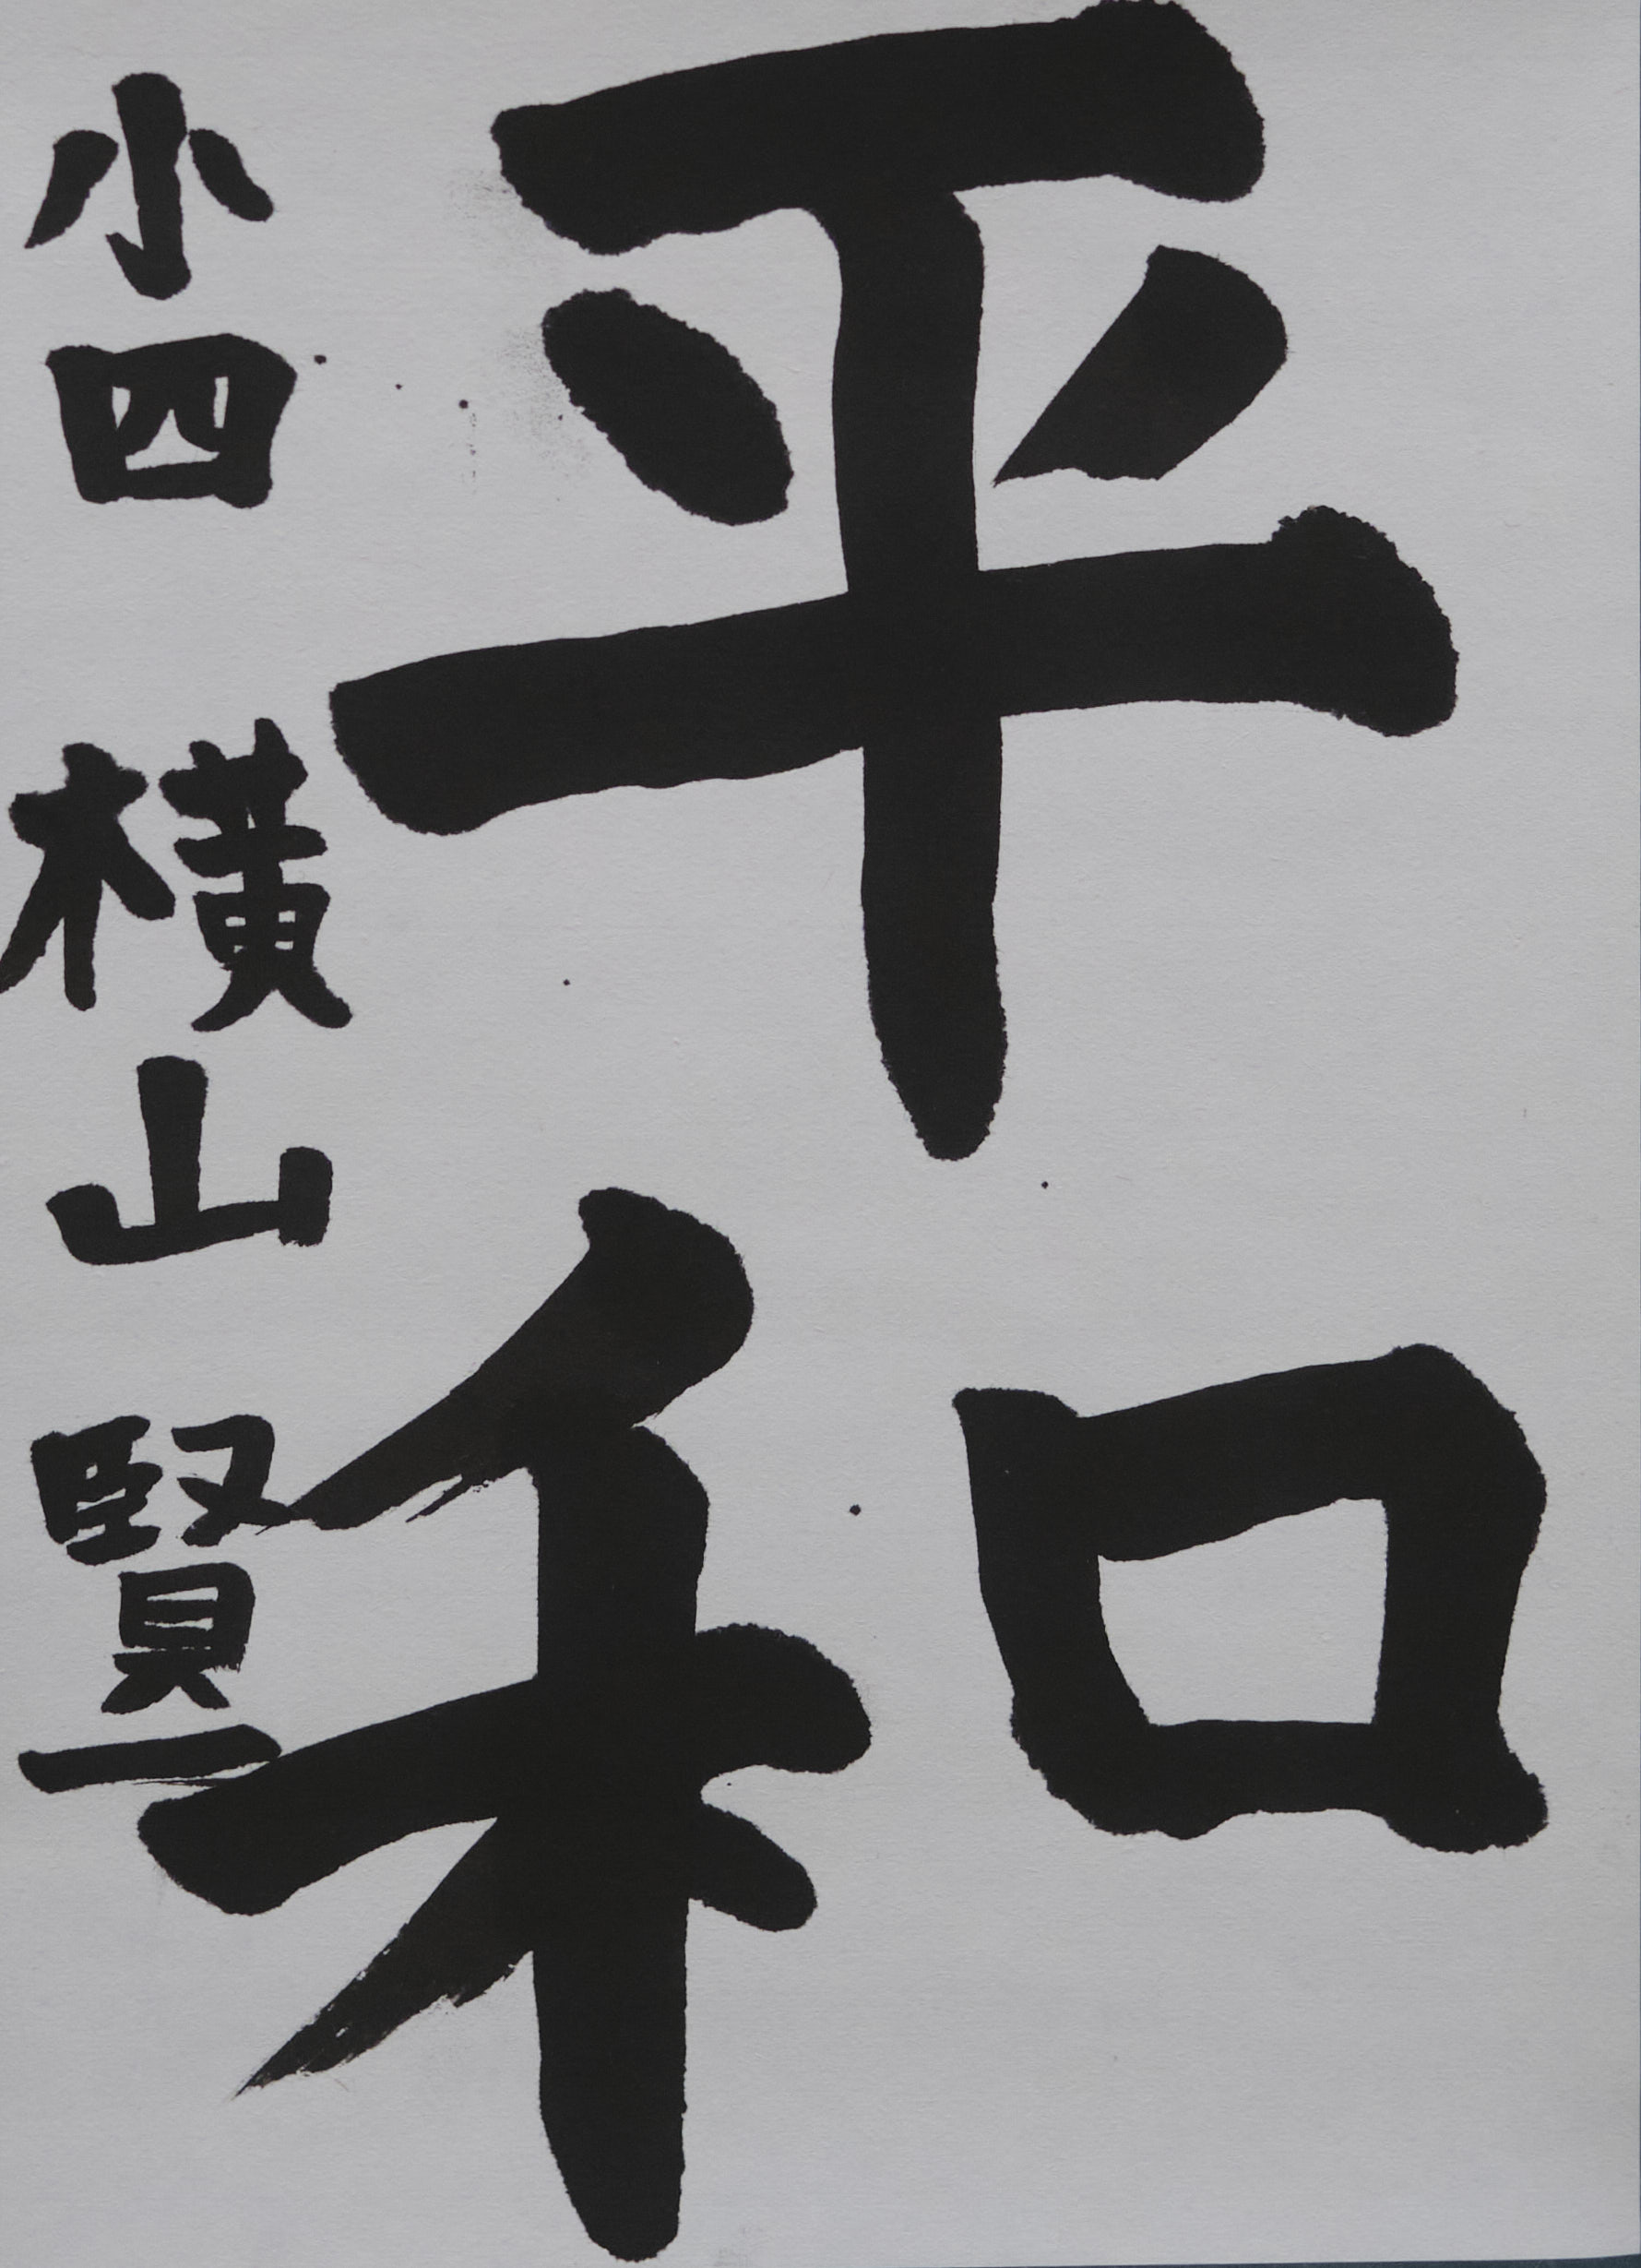 平和
小四 横山賢一